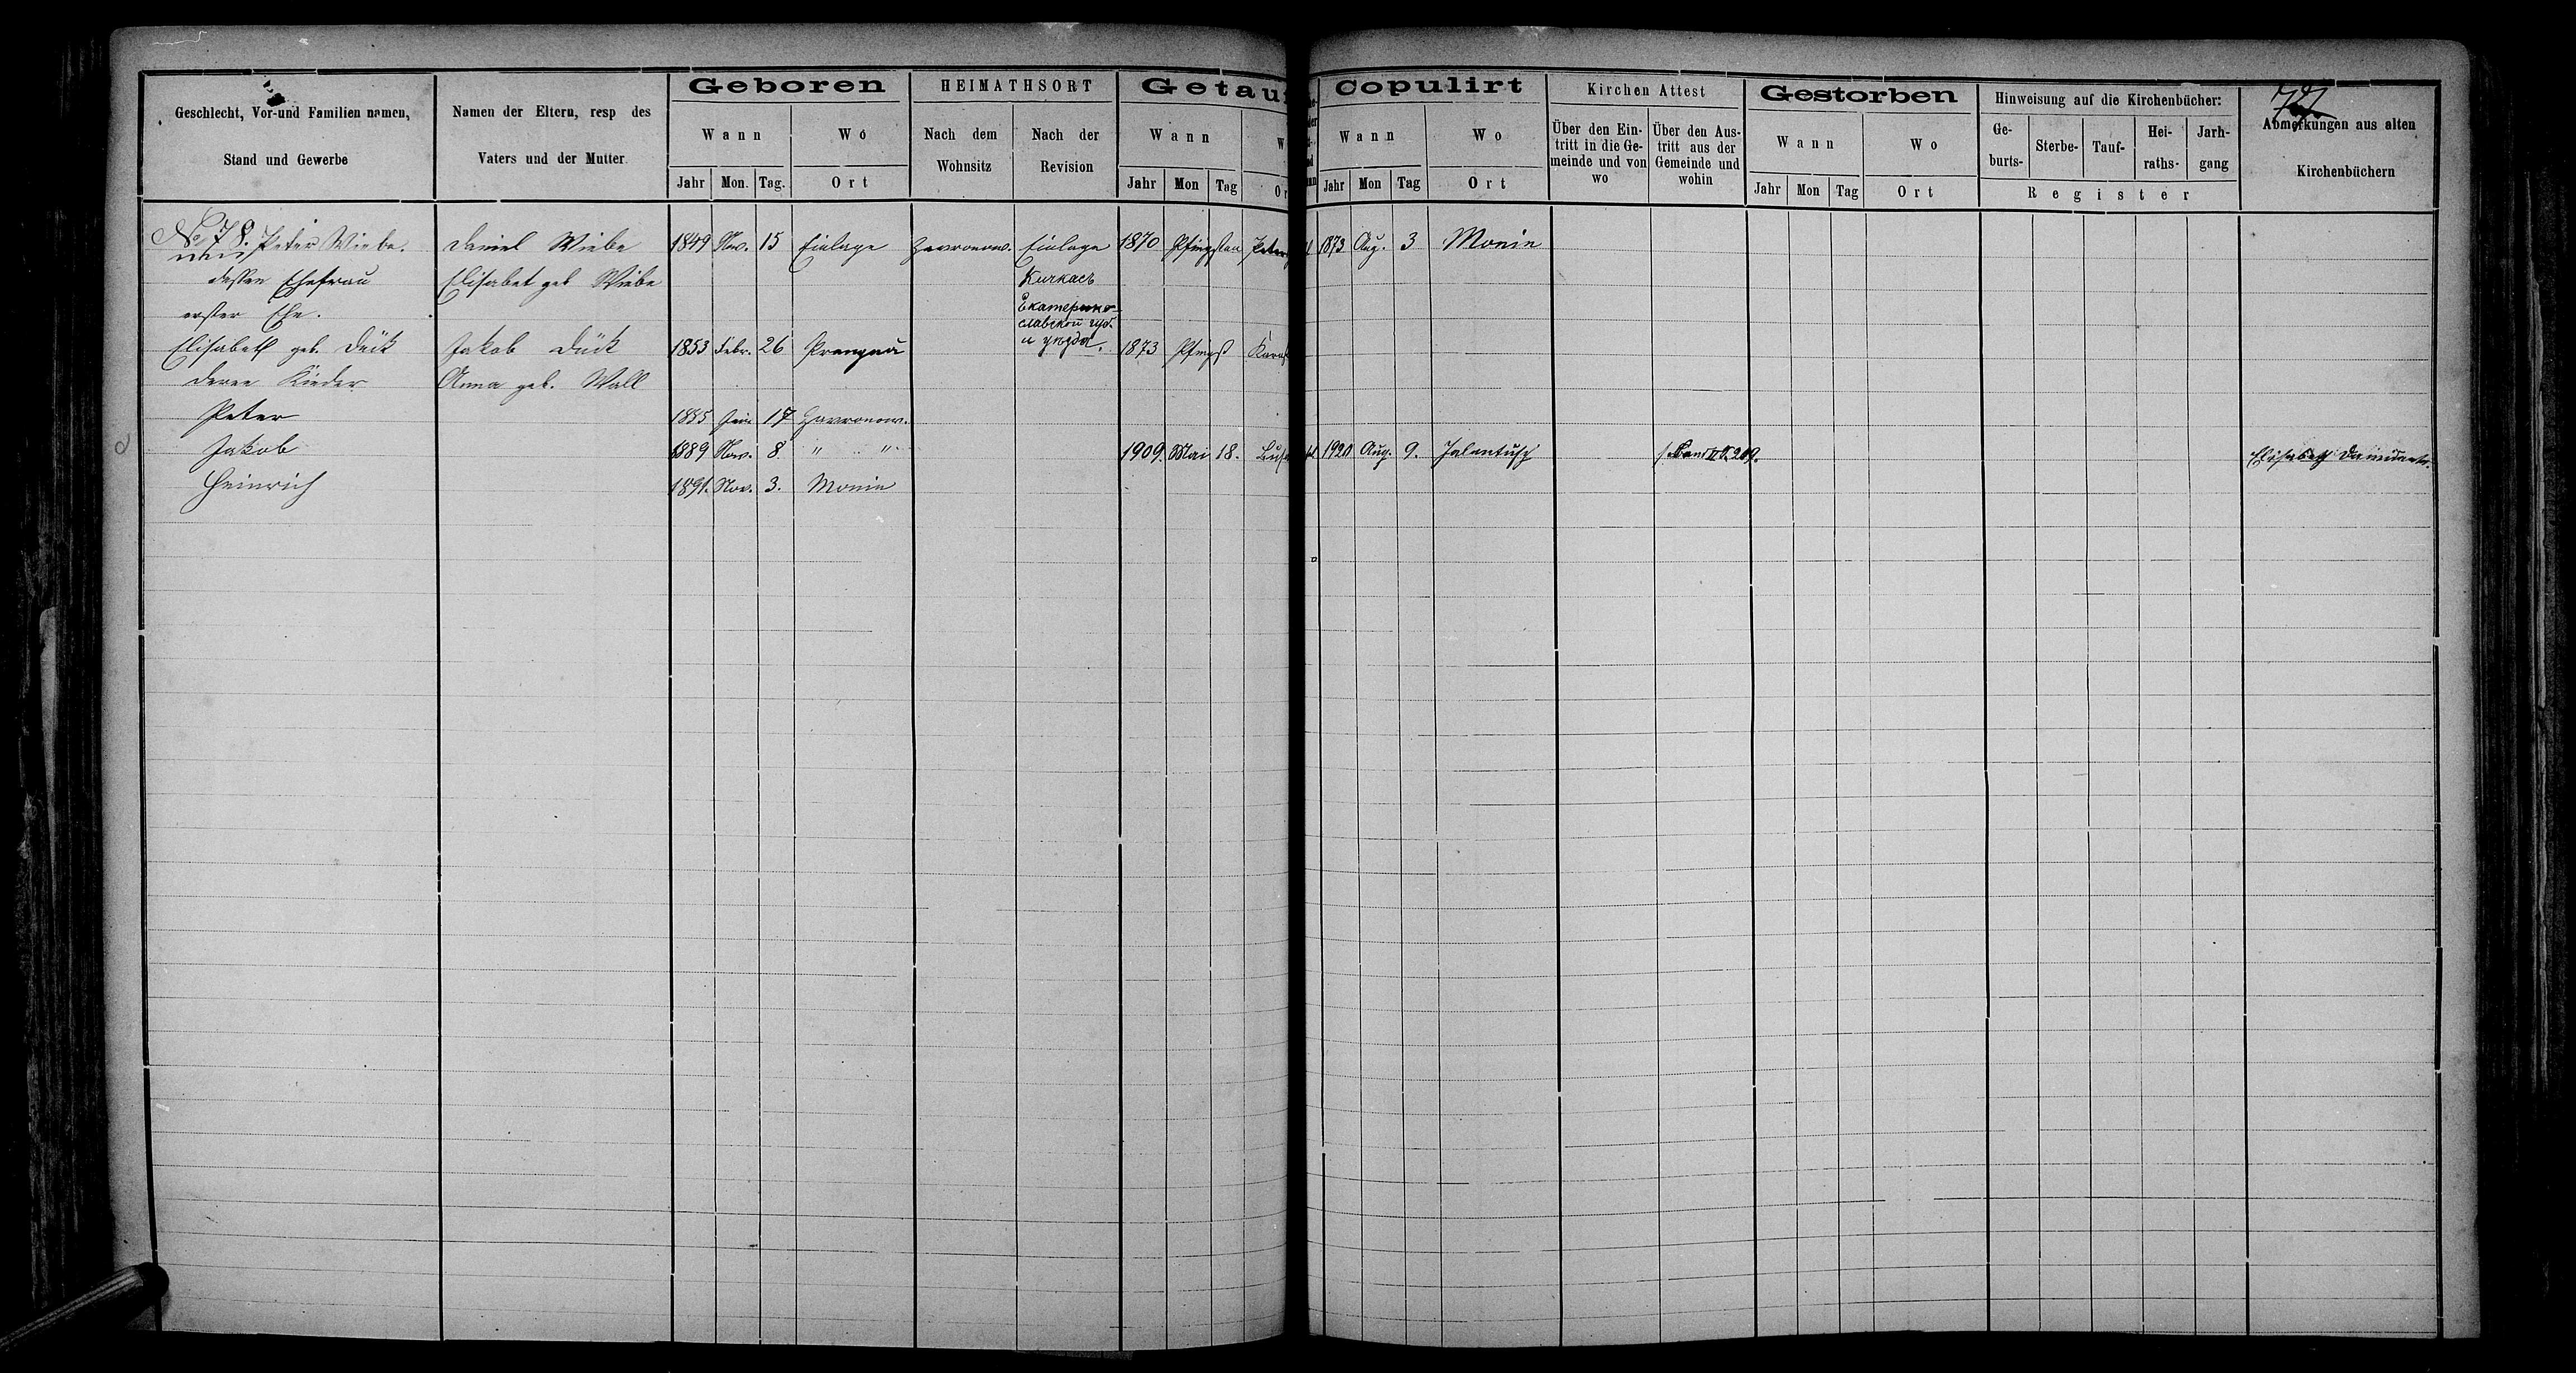 Geschlecht, Vor-und Familien namen,
Stand und Gewerbe
Namen der Eltern, resp des
Vaters und der Mutter.
Geboren
Wann
Wo
Jahr Mon. Tag. Ort
HEIMATHSORT
Nach dem Wohnsitz
Nach der Revision
Getauf
Wann
Jahr Mon Tag
Copulirt
Wann
Wo
Jahr Mon Tag Ort
Kirchen Attest
Über den Ein-
tritt in die Ge-
meinde und von
wo
Über den Aus-
tritt aus der
Gemeinde und
wohin
Gestorben
Wann
Wo
Jahr Mon Tag Ort
Hinweisung auf die Kirchenbücher:
Ge-
burts-
Sterbe-
Tauf-
Hei-
raths-
Jarh-
gang
Register
Abmerkungen aus alten
Kirchenbüchern
No 78. Peter Wiebe. Daniel Wiebe 1849 Nov. 15 Einlage Einlage 1870 Pfingsten 1873 Aug. 3 Monin
dessen Ehefrau Elisabet geb Wiebe Кичкасъ
erster Ehe. Екатерино-
славской губ.
Elisabeth geb. Dück Jakob Dück 1853 Febr. 26 и уезда. 1873 Pfingst
deren Kinder Anna geb. Wall
Peter 1885 17
Jakob 1889 Nov. 8 " " 1909. Mai 18. 1920 Aug. 9. Band II S. 209. Elisabeth
Heinrich 1891. Nov. 3. Monin